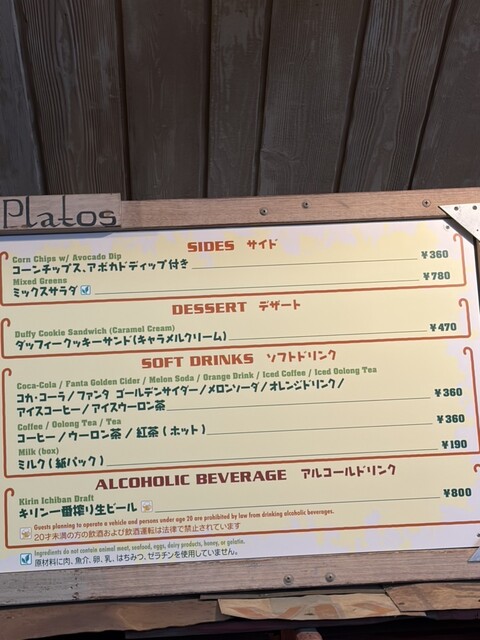 Platos
SIDES サイド
Corn Chips w/ Avocado Dip
コーンチップス、アボカドディップ付き ¥360
Mixed Greens
ミックスサラダ ¥780
DESSERT デザート
Duffy Cookie Sandwich (Caramel Cream)
ダッフィークッキーサンド(キャラメルクリーム) ¥470
SOFT DRINKS ソフトドリンク
Coca-Cola / Fanta Golden Cider / Melon Soda / Orange Drink / Iced Coffee / Iced Oolong Tea
コカ・コーラ/ファンタ ゴールデンサイダー/メロンソーダ/オレンジドリンク/
アイスコーヒー/アイスウーロン茶 ¥360
Coffee / Oolong Tea / Tea
コーヒー/ウーロン茶/紅茶(ホット) ¥360
Milk (box)
ミルク(紙パック) ¥190
ALCOHOLIC BEVERAGE アルコールドリンク
Kirin Ichiban Draft
キリン一番搾り生ビール ¥800
Guests planning to operate a vehicle and persons under age 20 are prohibited by law from drinking alcoholic beverages.
20才未満の方の飲酒および飲酒運転は法律で禁止されています
Ingredients do not contain animal meat, seafood, eggs, dairy products, honey, or gelatin.
原材料に肉、魚介、卵、乳、はちみつ、ゼラチンを使用していません。